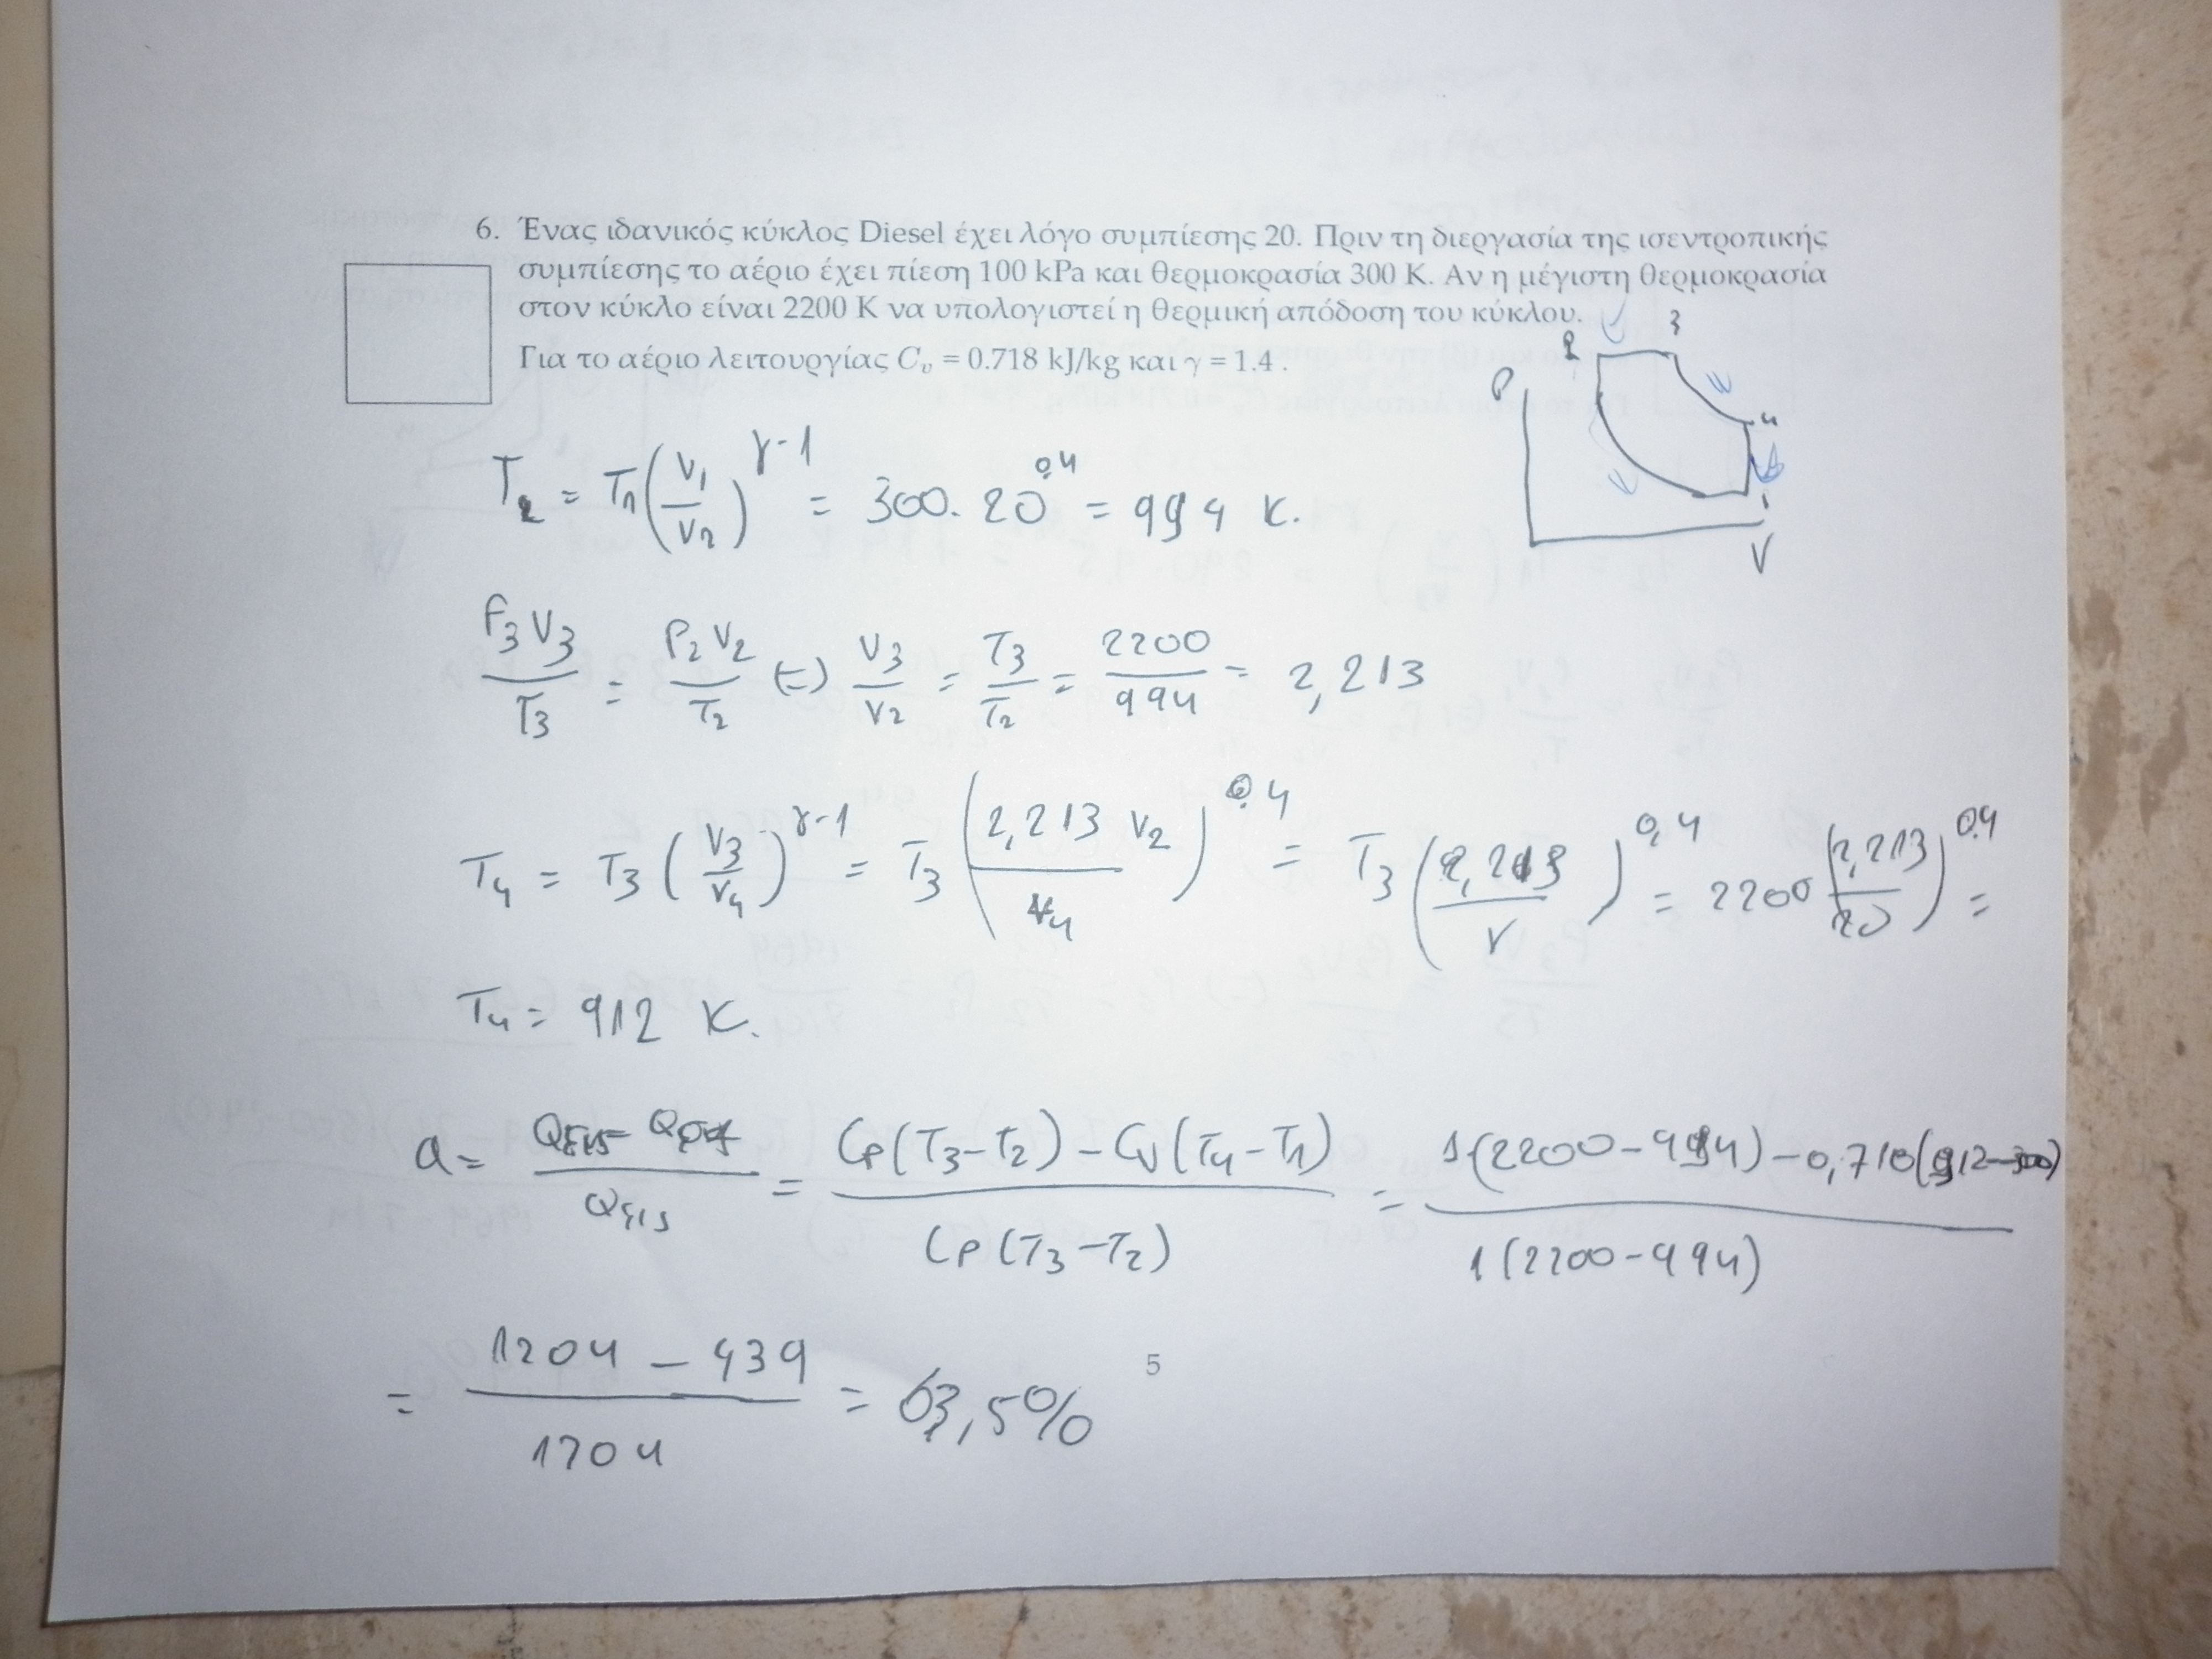 6. Ένας ιδανικός κύκλος Diesel έχει λόγο συμπίεσης 20. Πριν τη διεργασία της ισεντροπικής
συμπίεσης το αέριο έχει πίεση 100 kPa και θερμοκρασία 300 K. Αν η μέγιστη θερμοκρασία
στον κύκλο είναι 2200 K να υπολογιστεί η θερμική απόδοση του κύκλου.
Για το αέριο λειτουργίας Cᵥ = 0.718 kJ/kg και γ = 1.4 .
P 2 3 4 1 V
T₂ = T₁ (V₁/V₂)^(γ-1) = 300 · 20^0.4 = 994 K.
P₃V₃/T₃ = P₂V₂/T₂ (=) V₃/V₂ = T₃/T₂ = 2200/994 = 2,213
T₄ = T₃ (V₃/V₄)^(γ-1) = T₃ (2,213 V₂/V₄)^0.4 = T₃ (2,213/r)^0,4 = 2200 (2,213/20)^0.4 =
T₄ = 912 K.
a = (Qεισ - Qεξ)/Qεισ = (Cp(T₃-T₂) - Cv(T₄-T₁))/(Cp(T₃-T₂)) = (1(2200-994) - 0,718(912-300))/(1(2200-994))
= (1204 - 439)/1204 = 63,5%
5